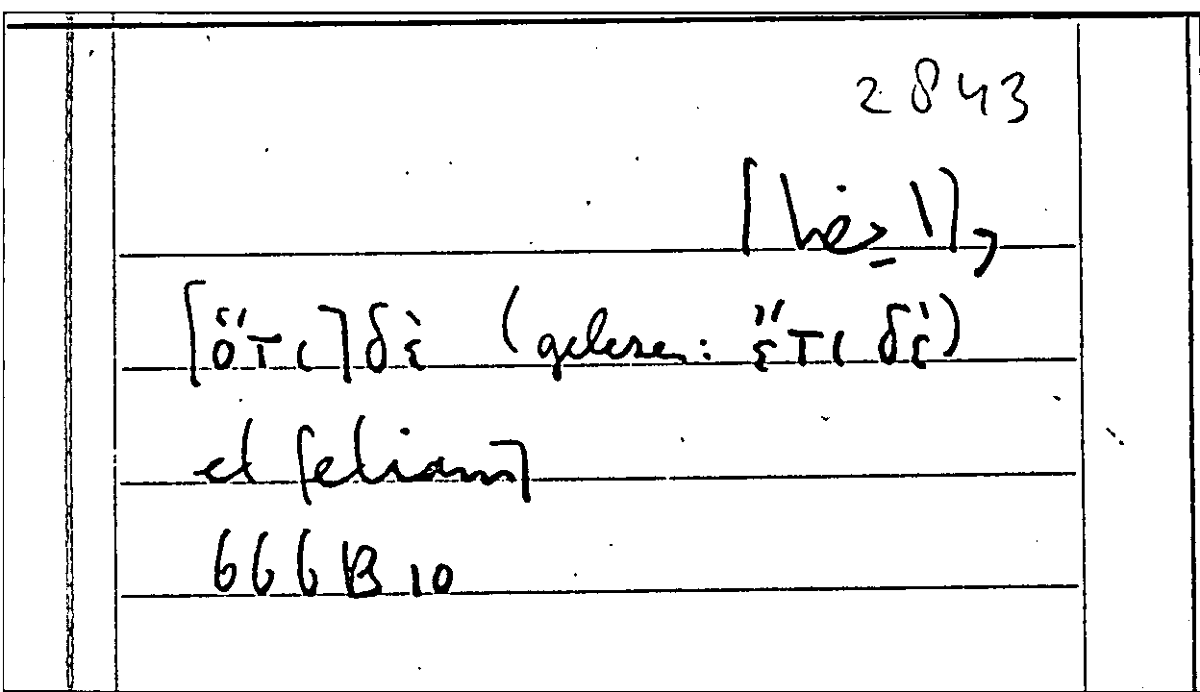 2843
[ὅτι] δὲ (gelesen: ἔτι δὲ)
et [etiam]
666 B 10